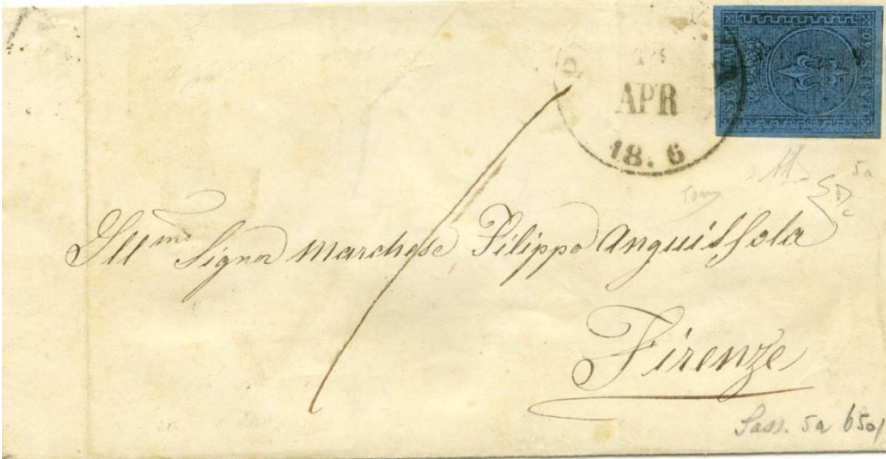 APR
18 6
5a
Ill.mo Signor Marchese Filippo Anguissola
Firenze
Sass. 5a 650/